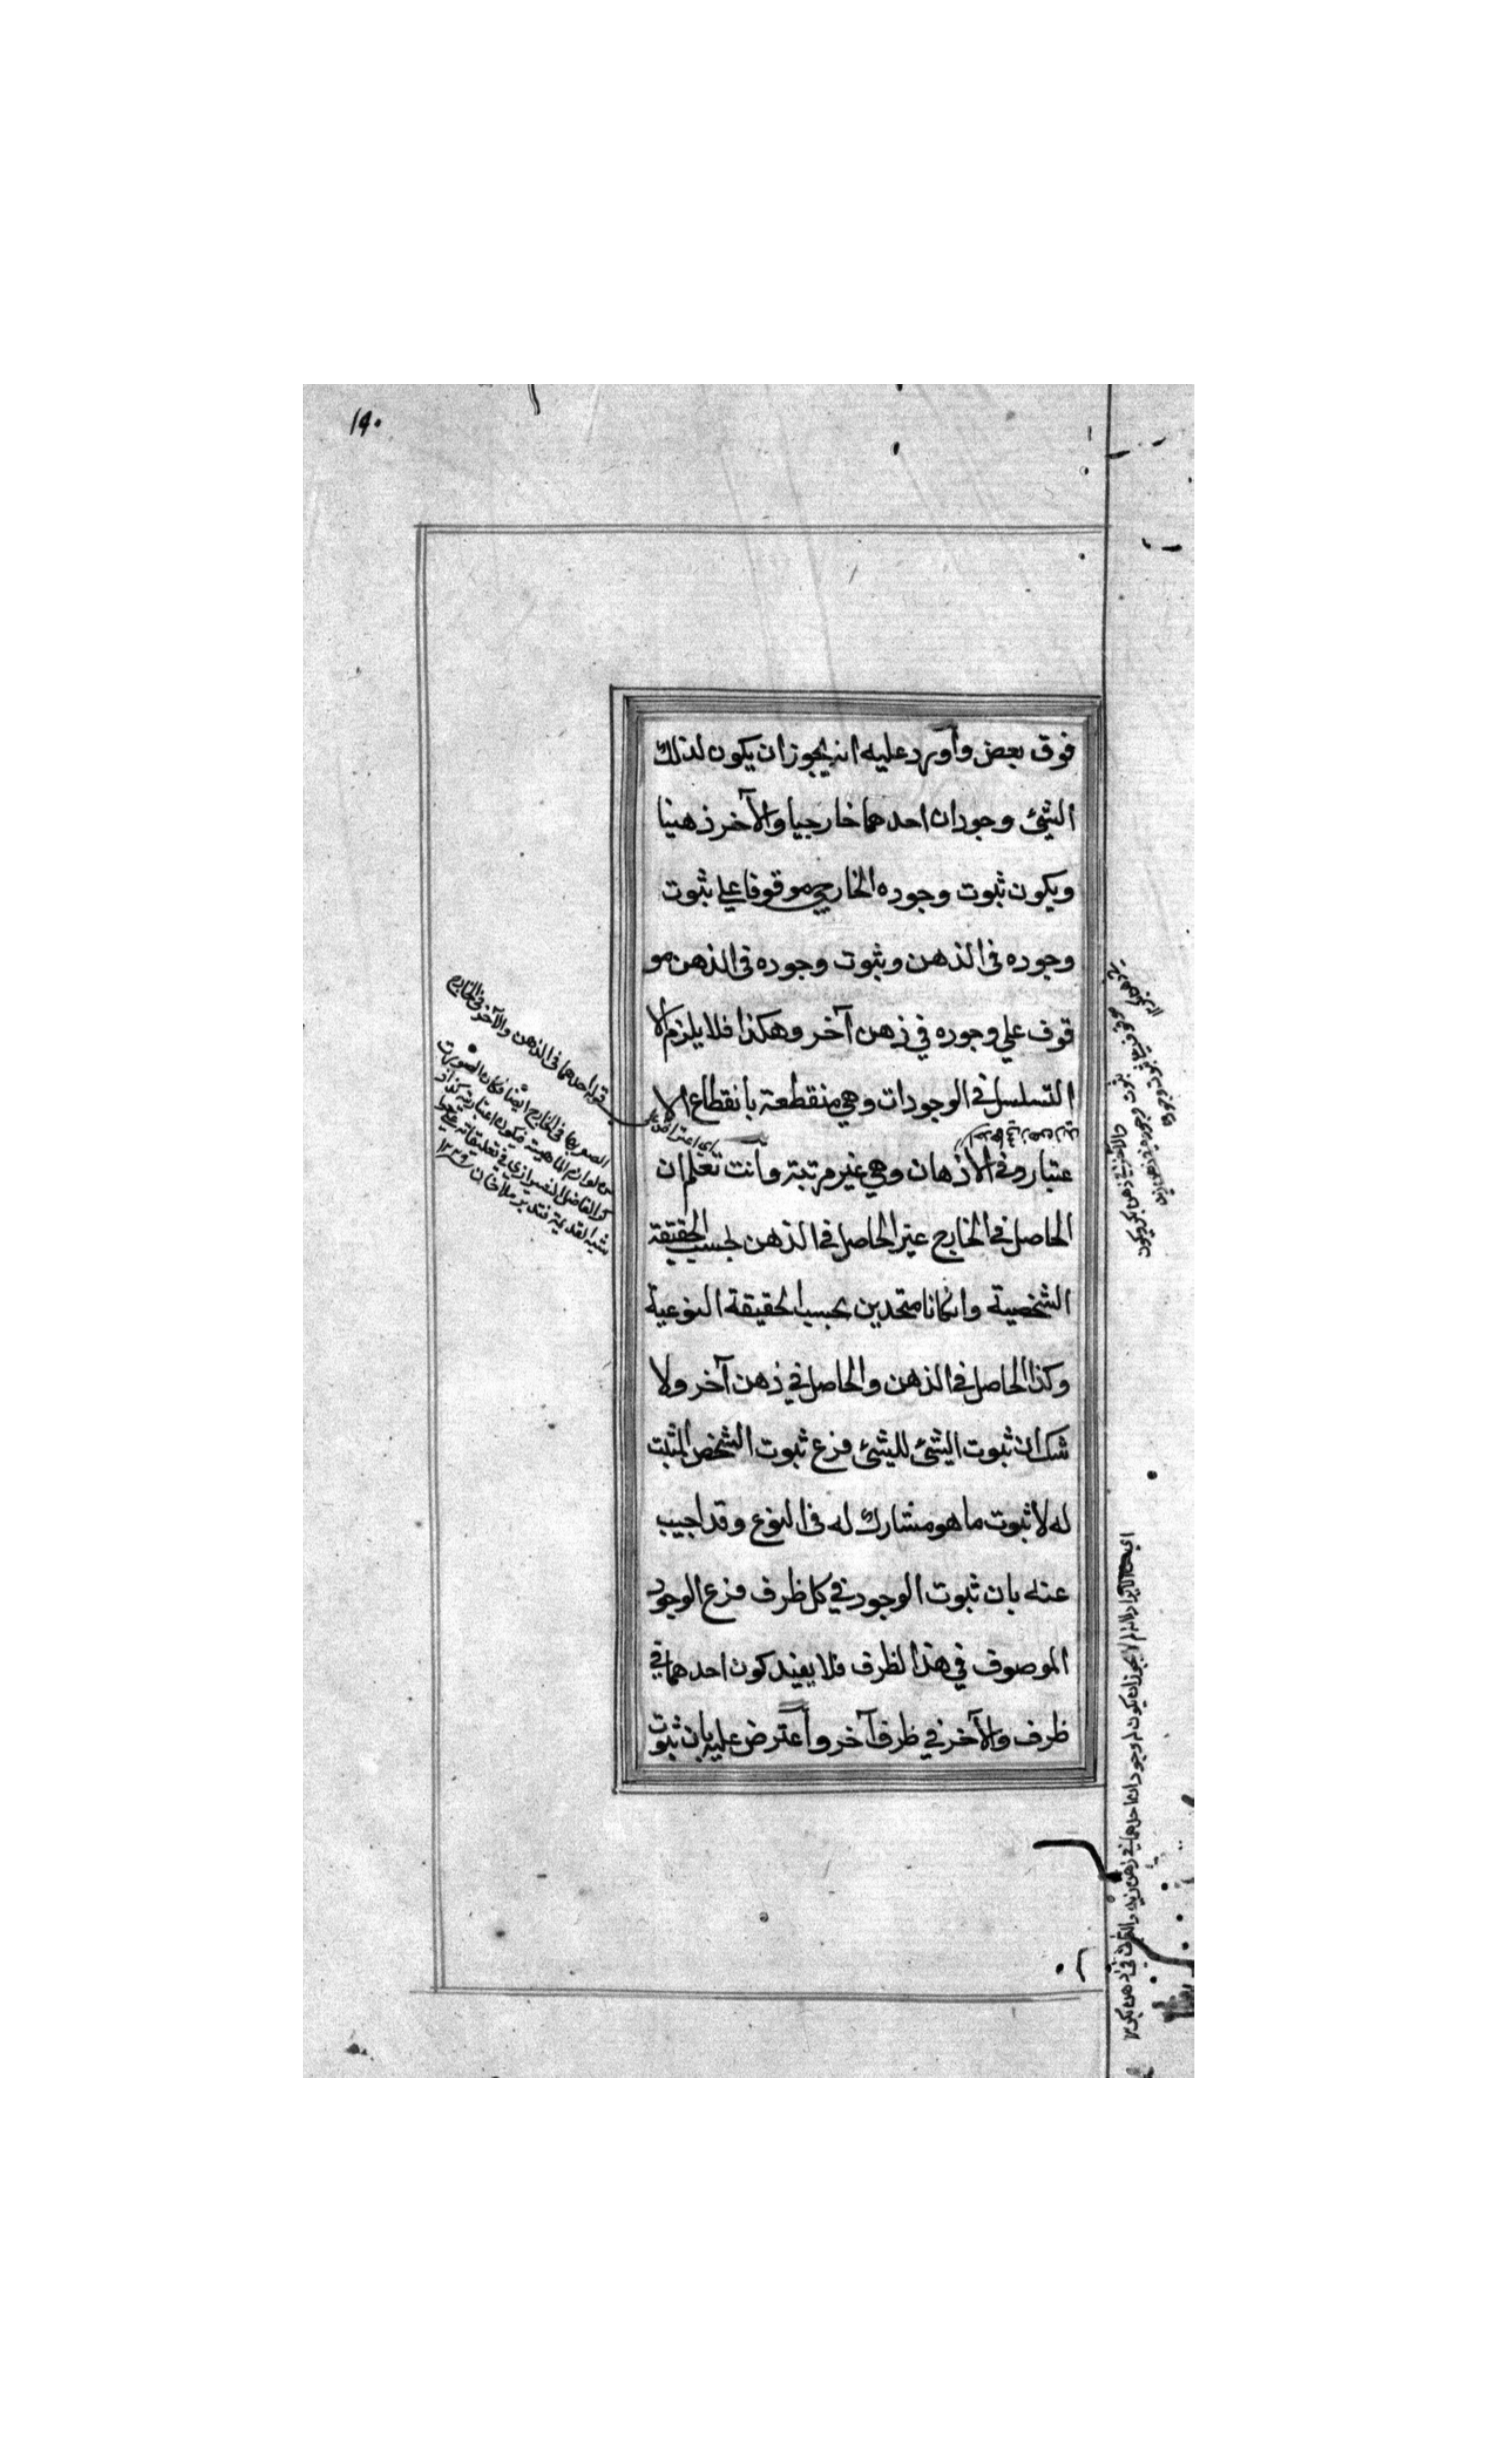 ١٩٠
فوق بعض وأورد عليه انه يجوز ان يكون لذلك
الشئ وجودان احدهما خارجيا والآخر ذهنيا
ويكون ثبوت وجوده الخارجي موقوفا على ثبوت
وجوده في الذهن وثبوت وجوده في الذهن مو
قوف علي وجوده في ذهن آخر وهكذا فلا يلزم الا
التسلسل في الوجودات وهي منقطعة بانقطاع الا
عتبار وفي الأذهان وهي غير مرتبة وأنت تعلم ان
الحاصل في الخارج غير الحاصل في الذهن بحسب الحقيقة
الشخصية وانكانا متحدين بحسب الحقيقة النوعية
وكذا الحاصل في الذهن والحاصل في ذهن آخر ولا
شك ان ثبوت الشئ للشئ فرع ثبوت الشخص المثبت
له لا ثبوت ما هو مشارك له في النوع وقد اجيب
عنه بان ثبوت الوجود في كل ظرف فرع الوجود
الموصوف في هذا الظرف فلا يفيد كون احدهما في
ظرف والآخر في ظرف آخر وأعترض عليه بان ثبوت
اي اعتراض
قوله احدهما في الذهن والآخر في الخارج
من لوازم الماهية فيكون اعتبارية